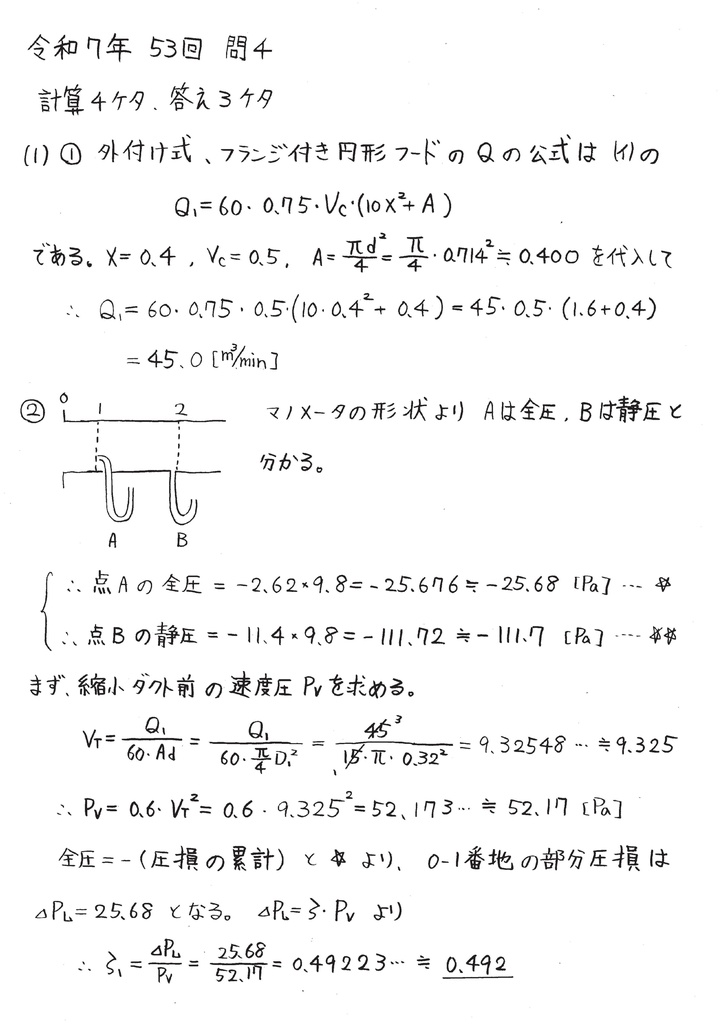 令和7年 53回 問4
計算4ケタ、答え3ケタ
(1) ① 外付け式、フランジ付き円形フードのQの公式は(イ)の
Q₁=60・0.75・Vc・(10X²+A)
である。X=0.4 , Vc=0.5, A=πd²/4=π/4・0.714²≒0.400 を代入して
∴ Q₁=60・0.75・0.5・(10・0.4²+0.4)=45・0.5・(1.6+0.4)
=45.0 [m³/min]
② 0 1 2 マノメータの形状より Aは全圧, Bは静圧と
分かる。
A B
∴点Aの全圧=-2.62×9.8=-25.676≒-25.68 [Pa] … ☆
∴点Bの静圧=-11.4×9.8=-111.72≒-111.7 [Pa] … ☆☆
まず、縮小ダクト前の速度圧Pvを求める。
V_T=Q₁/60・Ad=Q₁/60・π/4 D₁²=45 3/1 15・π・0.32²=9.32548…≒9.325
∴ Pv=0.6・V_T²=0.6・9.325²=52.173…≒52.17 [Pa]
全圧=-(圧損の累計)と☆より、0-1番地の部分圧損は
⊿P_L=25.68 となる。⊿P_L=ζ・Pv より
∴ ζ₁=⊿P_L/Pv=25.68/52.17=0.49223…≒0.492